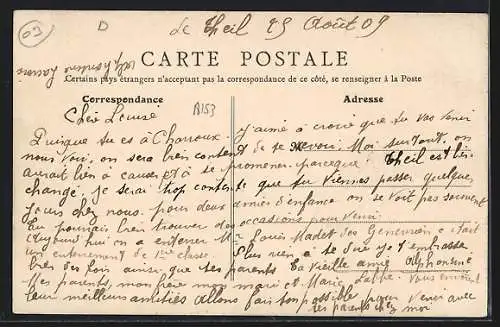 03
D
Le Theil 29 Août 09
CARTE POSTALE
Certains pays étrangers n'acceptant pas la correspondance de ce côté, se renseigner à la Poste
Correspondance
Adresse
B153
Chère Louise
Puisque tu es à Charroux
nous voir, on sera bien content
aurait bien à causer et à se
changé. je serai trop content
jours chez nous. pour deux
tu pourrais bien trouver des
Aujourd'hui on a enterrer Mr
un enterrement de 1ère classe.
bien des fois ainsi que tes parents
Mes parents, mon frère mon mari et Marie
leur meilleurs amitiés Allons fais ton possible
j'aime à croire que tu vas venir
de se revoir. Moi surtout, on
promener. parceque Theil est bien
te que tu viennes passer quelques
amies d'enfance on se voit pas souvent
occasions pour venir
Louis Madet des c'était
Plus rien à te dire je t'embrasse
Ta vieille amie Alphonsine
Vous envoient
pour venir avec
tes parents chez moi